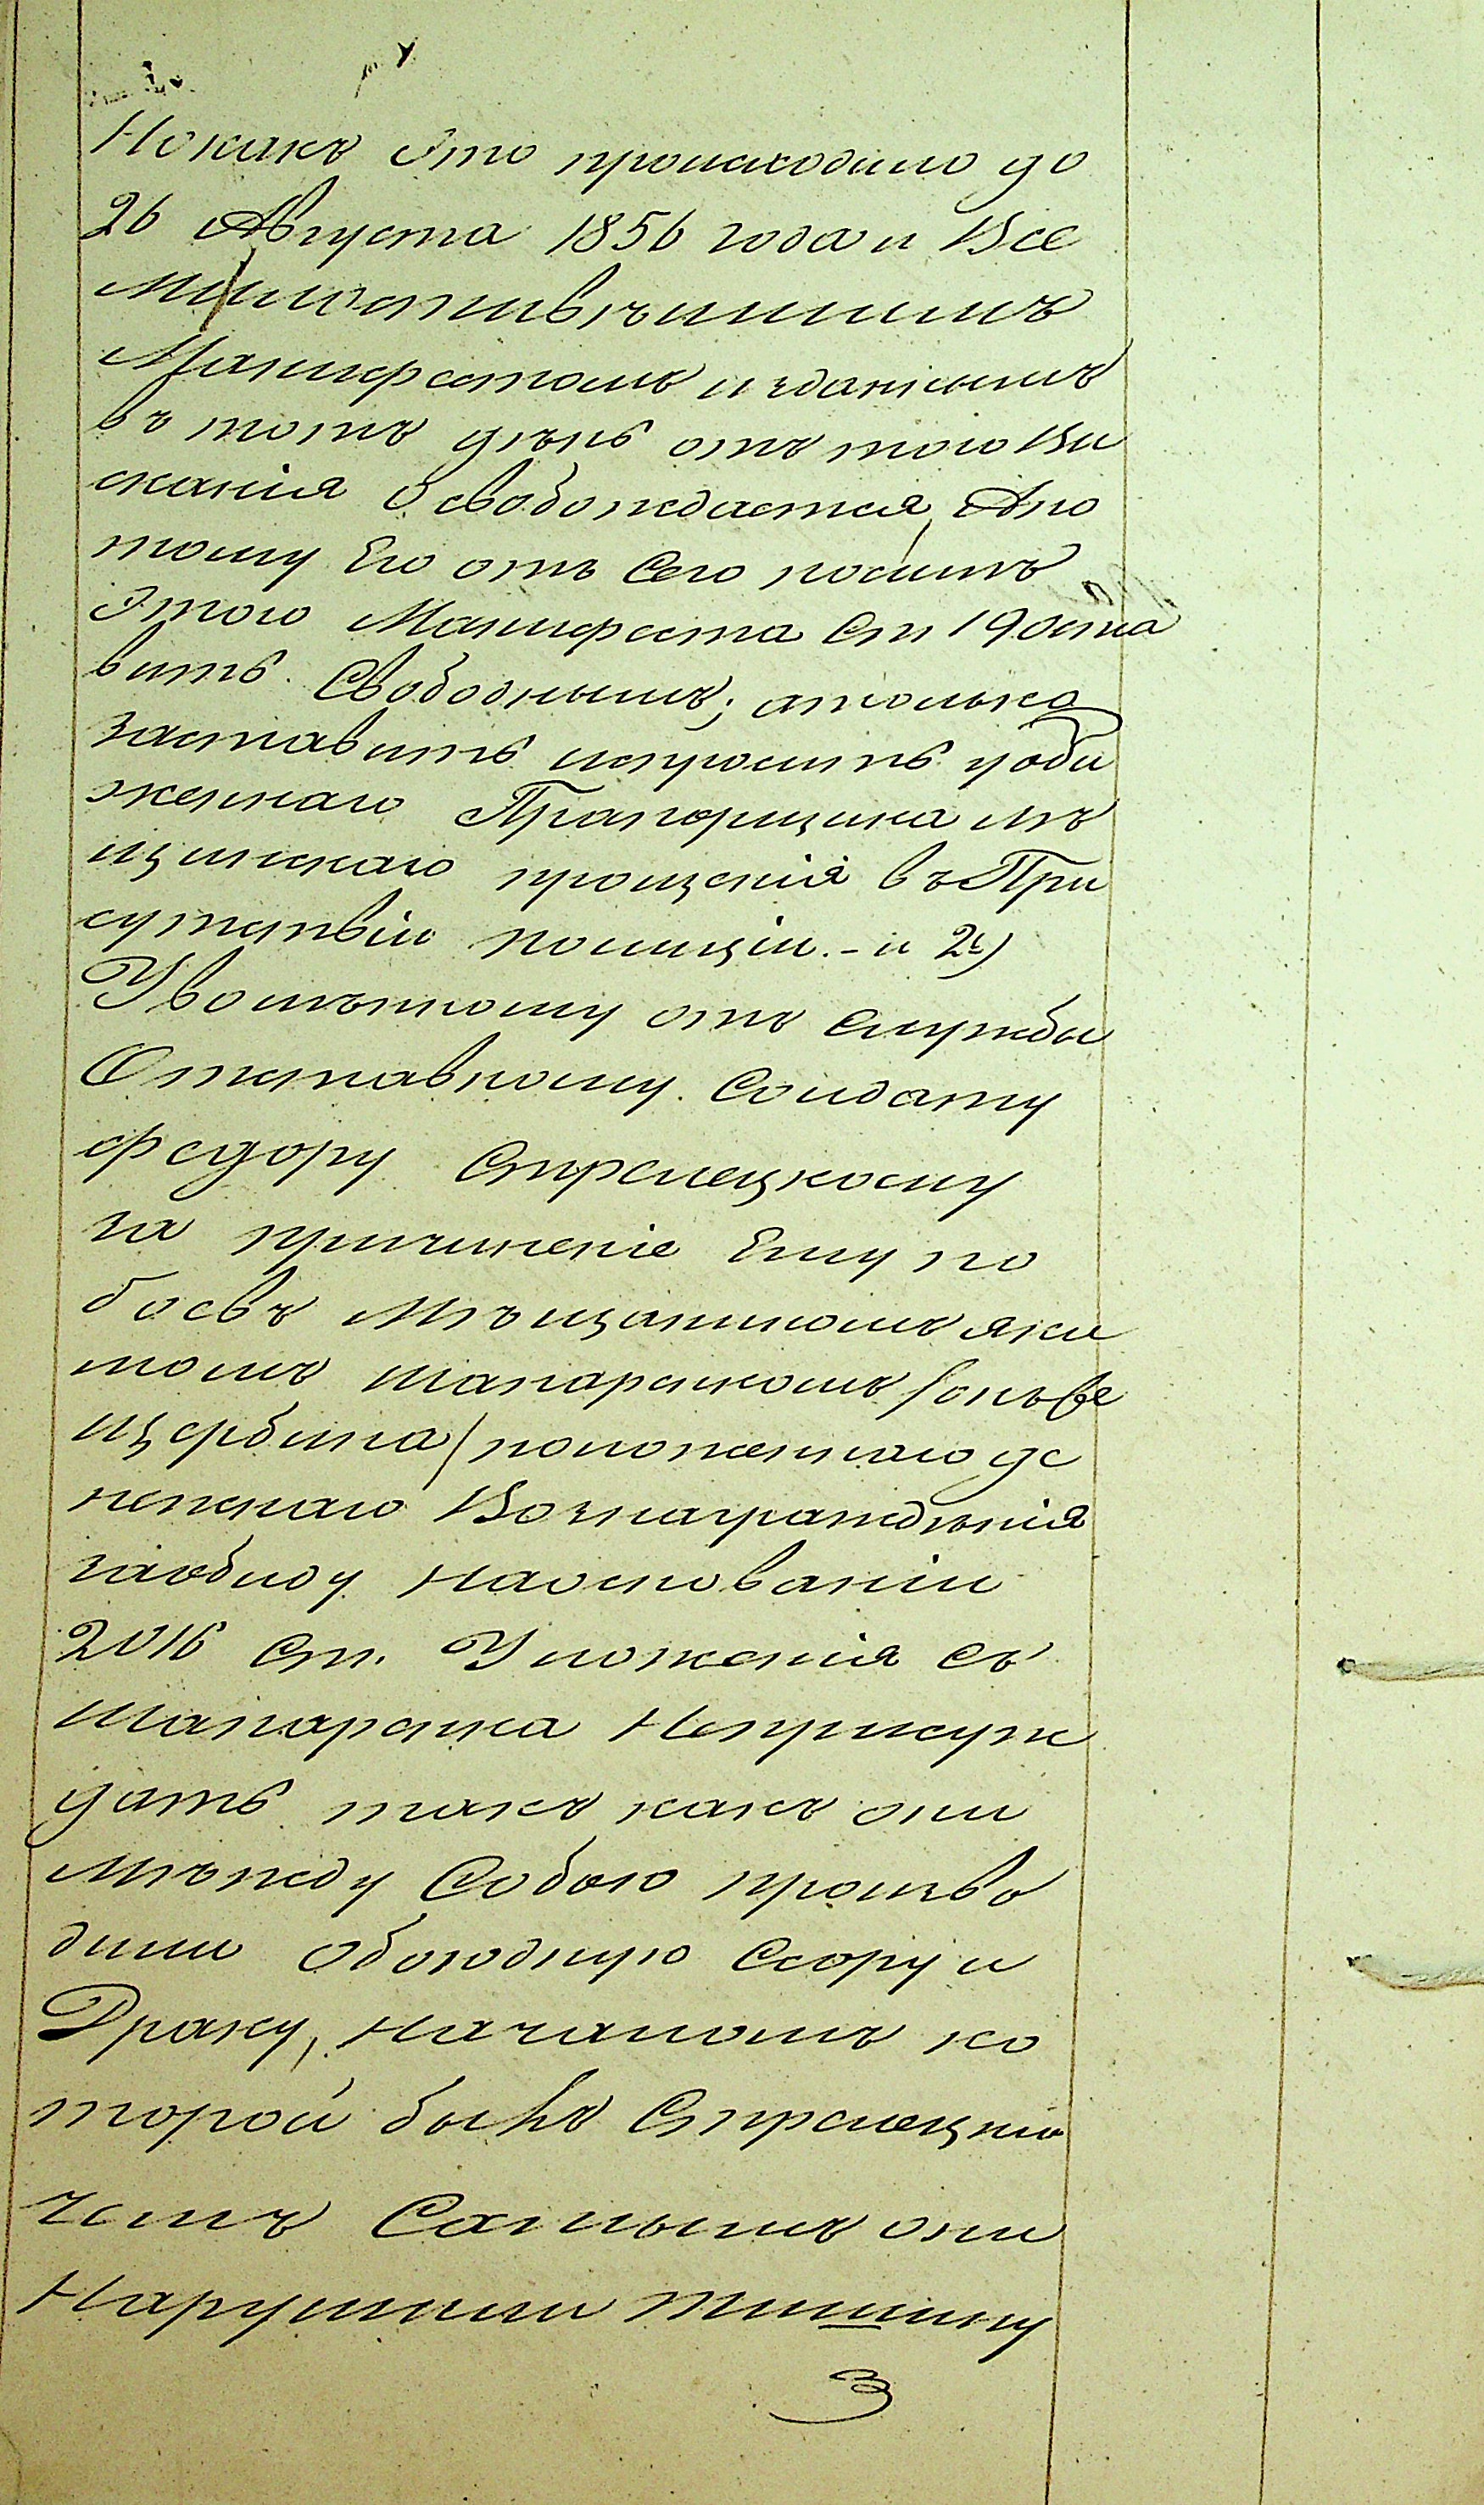 Но какъ Это происходило до
26 Августа 1856 года и Все
Милостивѣйшимъ
Манифестомъ изданнымъ
въ тотъ дѣнь отъ того Взы
сканія Освобождается, А по
тому Его отъ Сего по силѣ
Этого Манифеста Ст 19 Оста
вить Свободнымъ; а только
заставить испросить у оби
женнаго Прапорщика
прощенія въ При
сутствіи полиціи. - и 2е)
Уволѣнному отъ Службы
Отставному Солдату
Федору Стрелецкому
за причиненіе Ему по
боевъ Мѣщаниномъ Яки
момъ Шапаренкомъ /онъ же
Щербина/ положеннаго де
нежнаго Вознагражденія
за обиду на основаніи
2016 Ст. Уложенія съ
Шапаренка Неприсуж
дать такъ какъ они
Мѣжду Собою произво
дили Обоюдную Ссору и
Драку, Началомъ ко
торой былъ Стрелецкій
чемъ Самымъ они
Нарушили тишину
3